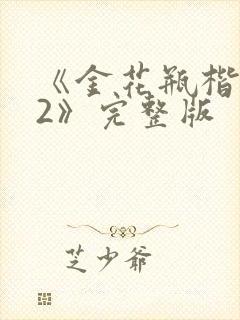 《金花瓶楷
2》完整版
芝少爷